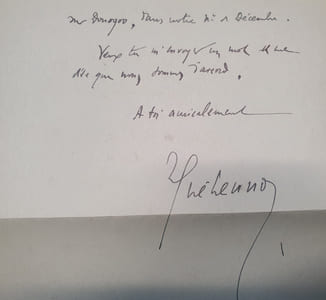 sur Donogoo, dans notre nº 1 Décembre.
Veux tu m'envoyer un mot et me
dire que nous sommes d'accord.
A toi amicalement
Guéhenno